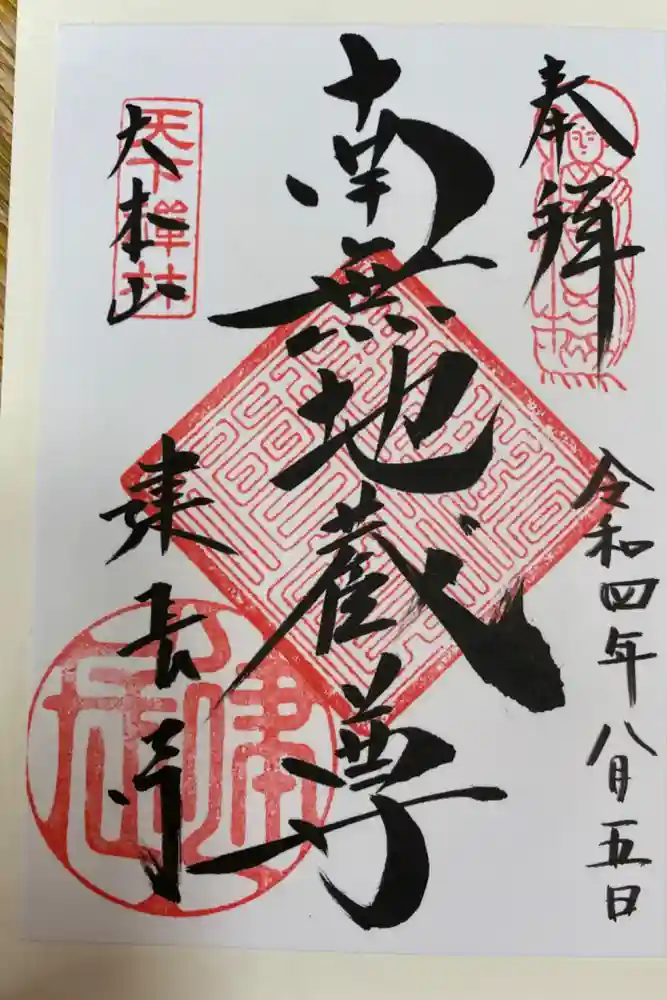 奉拝
令和四年八月五日
南無地蔵尊
大本山
天下禅林
建長寺